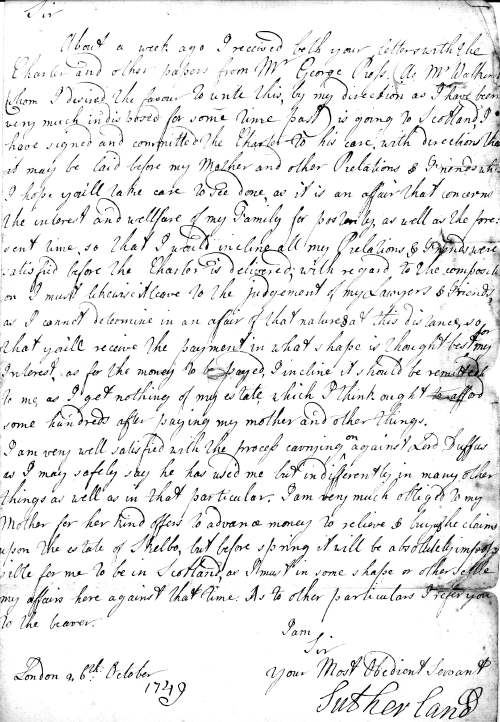 Sir
About a week ago I received both your letters with the
Charter and other papers from Mr George Ross. As Mr Walker
(whom I desired the favour to write this, by my direction as I have been
very much indisposed for some time past) is going to Scotland, I
have signed and committed the Charter to his care, with directions tha
it may be laid before my Mother and other Relations & Friends whic
I hope you'll take care to see done, as it is an affair that concerns
the interest and wellfare of my Family for posterity, as well as the pre-
sent time, so that I would incline all my Relations & Friends were
satisfied before the Charter is delivered; with regard to the compositi
on I must likewise leave to the judgement of my Lawyers & Friends
as I cannot determine in an afair of that nature & at this distance, so
that you'll receive the payment in what shape is thought best for my
Interest, as for the money to be payed, I incline it should be remitted
to me, as I get nothing of my estate, which I think ought to afford
some hundreds after paying my mother and other things.
I am very well satisfied with the process carrying on against Lord Duffus
as I may safely say he has used me but indifferently in many other
things as well as in that particular. I am very much obliged to my
Mother for her kind offers to advance money to relieve & buy the claims
upon the estate of Skelbo, but before spring it will be absolutely imposs
ible for me to be in Scotland, as I must in some shape or other settle
my affairs here against that time. As to other particulars I refer you
to the bearer.
I am
Sir
London 26th October
Your Most Obedient Servant
1749
Sutherland